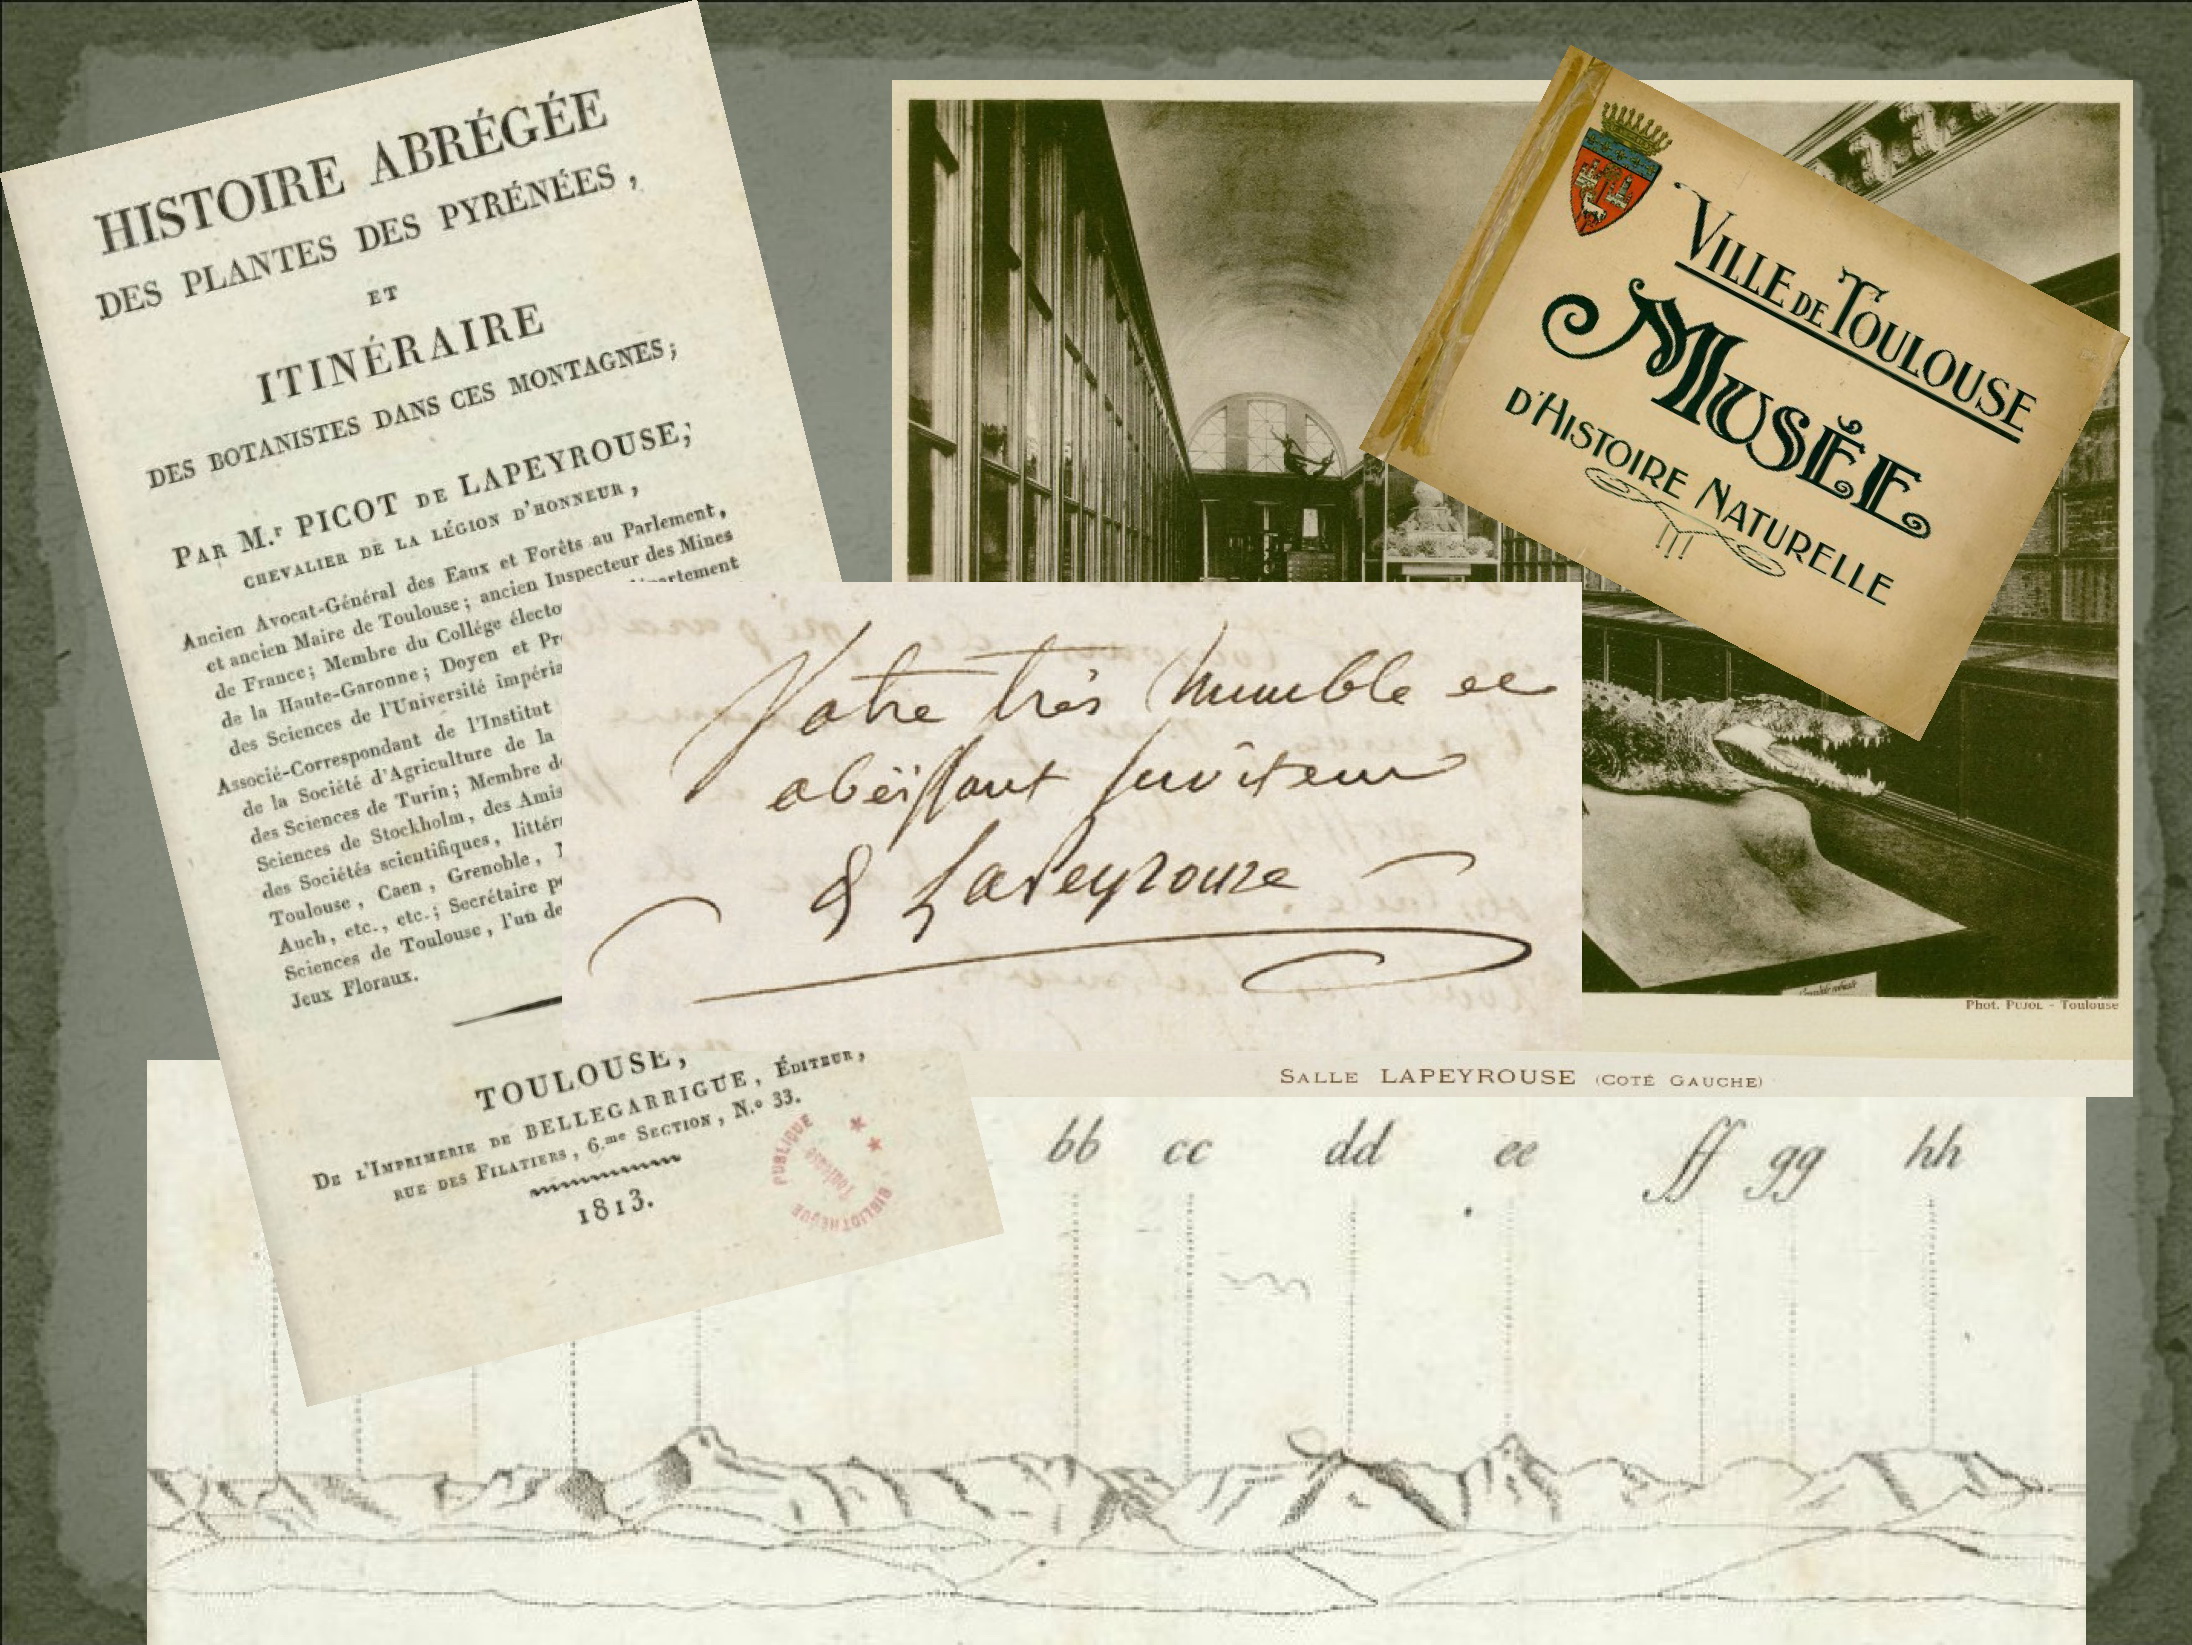 HISTOIRE ABRÉGÉE
DES PLANTES DES PYRÉNÉES,
ET
ITINÉRAIRE
DES BOTANISTES DANS CES MONTAGNES;
PAR M.r PICOT DE LAPEYROUSE;
CHEVALIER DE LA LÉGION D'HONNEUR,
Ancien Avocat-Général des Eaux et Forêts au Parlement,
et ancien Maire de Toulouse; ancien Inspecteur des Mines
de France; Membre du Collége électo
de la Haute-Garonne; Doyen et Pr
des Sciences de l'Université impéria
Associé-Correspondant de l'Institut
de la Société d'Agriculture de la
des Sciences de Turin; Membre d
Sciences de Stockholm, des Amis
des Sociétés scientifiques, littér
Toulouse, Caen, Grenoble,
Auch, etc., etc.; Secrétaire p
Sciences de Toulouse, l'un de
Jeux Floraux.
TOULOUSE,
DE L'IMPRIMERIE DE BELLEGARRIGUE, ÉDITEUR,
RUE DES FILATIERS, 6.me SECTION, N.o 33.
1813.
BIBLIOTHÈQUE PUBLIQUE
Toulouse
VILLE DE TOULOUSE
MUSÉE
D'HISTOIRE NATURELLE
Votre très humble et
obéissant serviteur
& Lapeyrouze
Phot. PUJOL - Toulouse
SALLE LAPEYROUSE (COTÉ GAUCHE)
bb cc dd ee ff gg hh